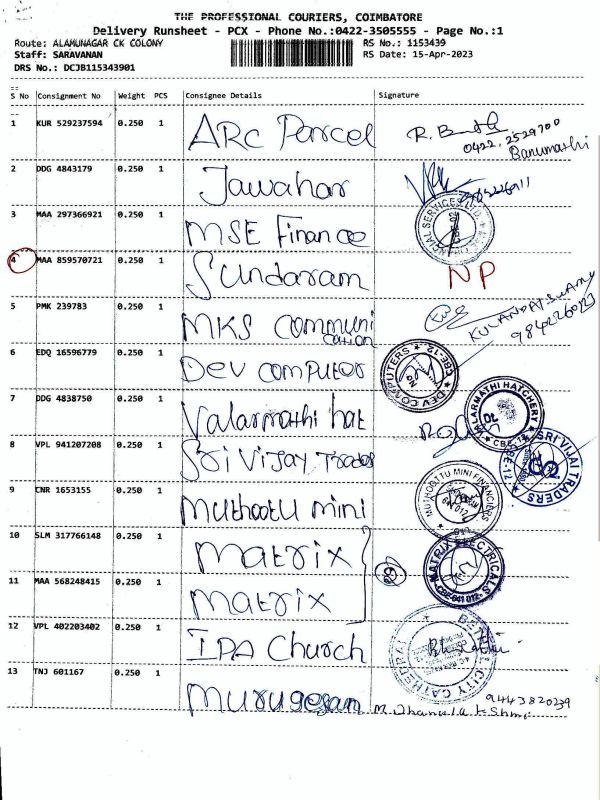 THE PROFESSIONAL COURIERS, COIMBATORE
Delivery Runsheet - PCX - Phone No.:0422-3505555 - Page No.:1
Route: ALAMUNAGAR CK COLONY RS No.: 1153439
Staff: SARAVANAN RS Date: 15-Apr-2023
DRS No.: DCJB115343901
S No Consignment No Weight PCS Consignee Details Signature
1 KUR 529237594 0.250 1 ARC Parcel
0422. 2529700
Banumathi
2 DDG 4843179 0.250 1 Jawahar
3 MAA 297366921 0.250 1 MSE Finance
4 MAA 859570721 0.250 1 Sundaram NP
5 PMK 239783 0.250 1 MKS Communi
cation
6 EDQ 16596779 0.250 1 Dev computer
DEV COMPUTERS CBE-12
7 DDG 4838750 0.250 1 Valarmathi hat
VALARMATHI HATCHERY CBE-12
8 VPL 941207208 0.250 1 Sri Vijay Trades
SRI VIJAI TRADERS
9 CNR 1653155 0.250 1 Muthootu mini
MUTHOOTTU MINI FINANCIERS
10 SLM 317766148 0.250 1 matrix
11 MAA 568248415 0.250 1 matrix
MATRIX ELECTRICALS CBE-641 012
12 VPL 402203402 0.250 1 IPA Church
13 TNJ 601167 0.250 1 Murugesan
9443820239